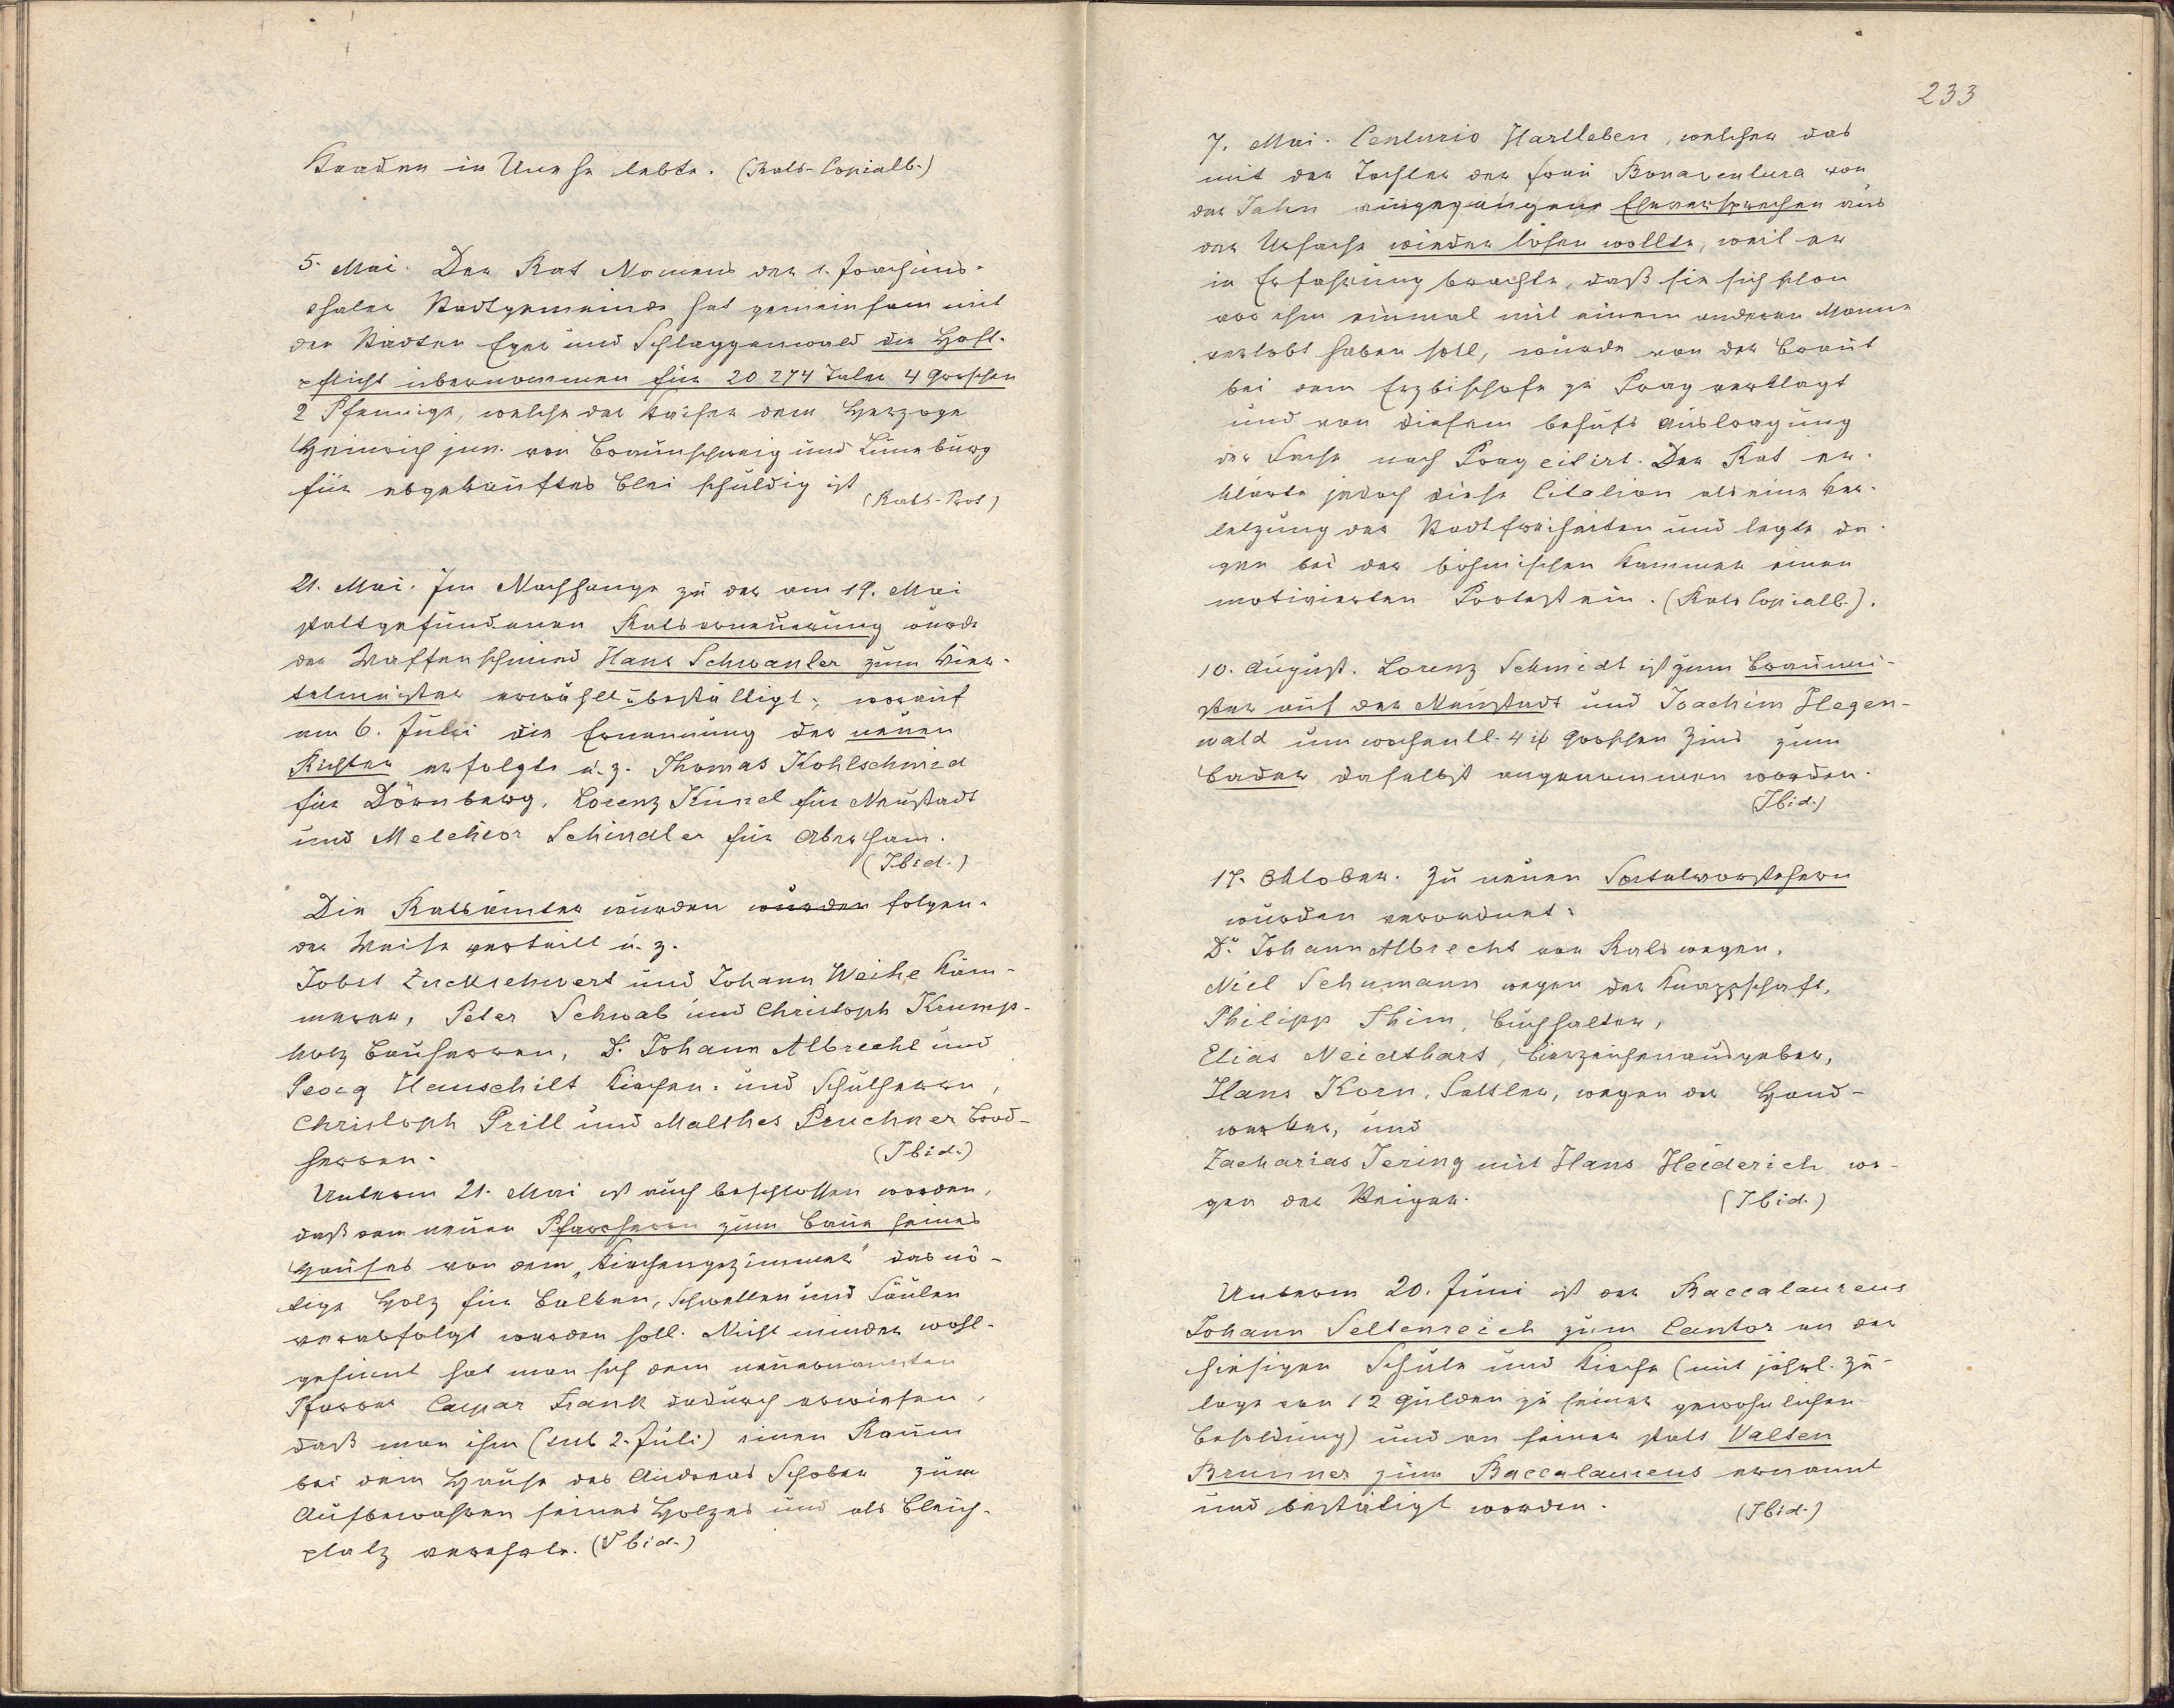 Kaaden in Unruhe lebte. (Rats-Copialb.)
5. Mai. Der Rat Namens der k. Joachims-
thaler Stadtgemeinde hat gemeinsam mit
den Städten Eger und Schlaggenwald die Haft-
pflicht übernommen für 20 274 Taler 4 Groschen
2 Pfennige, welche der Kaiser dem Herzoge
Heinrich jun. von Braunschweig und Lüneburg
für abgekauftes Blei schuldig ist
(Rats-Prot)
21. Mai. Im Nachhange zu der am 19. Mai
stattgefundenen Ratserneuerung wurde
der Waffenschmied Hans Schwanler zum Vier-
telmeister erwählt u. bestättigt, worauf
am 6. Juli die Ernennung der neuen
Richter erfolgte u. z. Thomas Kohlschmid
für Dörnberg, Lorenz Künel für Neustadt
und Melchior Schindler für Abertham.
(Ibid.)
Die Ratsämter wurden wurden folgen-
der Weise verteilt u. z.
Jobst Zuckschwert und Johann Weihe Käm-
merer, Peter Schwab und Christoph Krump-
holz Bauherren, D. Johann Albrecht und
Georg Hauschilt Kirchen- und Schulherrn,
Christoph Prill und Malthes Pruchner Brod-
herren. (Ibid.)
Unterm 21. Mai ist auch beschlossen worden,
daß dem neuen Pfarrherrn zum Baue seines
Hauses von dem „Kirchengezimmer" das nö-
tige Holz für Balken, Schwellen und Säulen
verabfolgt werden soll. Nicht minder wohl-
gesinnt hat man sich dem neuernannten
Pfarrer Caspar Frank dadurch erwiesen,
daß man ihm (sub 2. Juli) einen Raum
bei dem Hause des Andreas Schober zum
Aufbewahren seines Holzes und als Bleich-
platz verehrte. (Ibid.)
233
7. Mai. Centurio Hartleben, welcher das
mit der Tochter der Frau Bonaventura von
der Jahn eingegangene Eheversprechen aus
der Ursache wieder lösen wollte, weil er
in Erfahrung brachte, daß sie sich schon
vor ihm einmal mit einem anderen Manne
verlobt haben soll, wurde von der Braut
bei dem Erzbischofe zu Prag verklagt
und von diesem behufs Austragung
der Sache nach Prag citirt. Der Rat er-
klärte jedoch diese Citation als eine Ver-
letzung der Stadtfreiheiten und legte da-
gen bei der böhmischen Kammer einen
motivierten Protest ein. (Rats Copialb.).
10. August. Lorenz Schmidt ist zum Braumei-
ster auf der Neustadt und Joachim Hegen-
wald um wochentl. 4 Groschen Zins zum
Bader daselbst angenommen worden.
(Ibid.)
17. Oktober. Zu neuen Spitalvorstehern
wurden verordnet:
Dr. Johann Albrecht von Rats wegen,
Nicl Schumann wegen der Knappschaft,
Philipp Thim, Buchhalter,
Elias Neidthart, Bierzeichenausgeber,
Hans Korn, Sattler, wegen der Hand-
werker, und
Zacharias Tering mit Hans Heiderich we-
gen der Steiger. (Ibid.)
Unterm 20. Juni ist der Baccalaureus
Johann Seltenreich zum Cantor an der
hiesigen Schule und Kirche (mit jährl. Zu-
lage von 12 Gulden zu seiner gewohnlichen
Besoldung) und an seiner statt Valten
Brunner zum Baccalaureus ernannt
und bestätigt worden. (Ibid.)